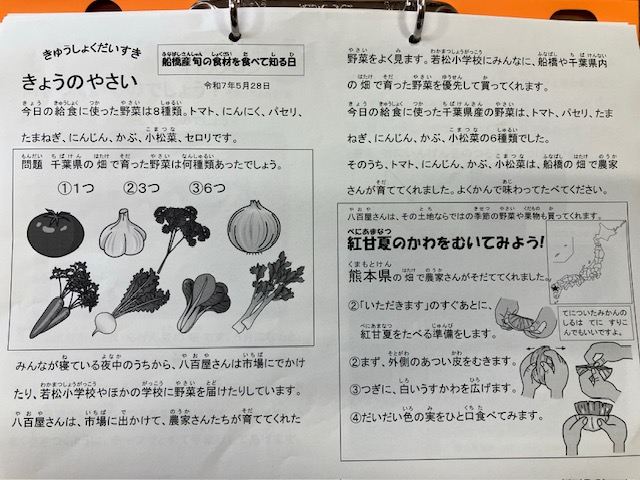 きゅうしょくだいすき
きょうのやさい
船橋産旬の食材を食べて知る日
令和7年5月28日
今日の給食に使った野菜は8種類。トマト、にんにく、パセリ、
たまねぎ、にんじん、かぶ、小松菜、セロリです。
問題 千葉県の畑で育った野菜は何種類あったでしょう。
①1つ ②3つ ③6つ
みんなが寝ている夜中のうちから、八百屋さんは市場にでかけ
たり、若松小学校やほかの学校に野菜を届けたりしています。
八百屋さんは、市場に出かけて、農家さんたちが育ててくれた
野菜をよく見ます。若松小学校にみんなに、船橋や千葉県内
の畑で育った野菜を優先して買ってくれます。
今日の給食に使った千葉県産の野菜は、トマト、パセリ、たま
ねぎ、にんじん、かぶ、小松菜の6種類でした。
そのうち、トマト、にんじん、かぶ、小松菜は、船橋の畑で農家
さんが育ててくれました。よくかんで味わってたべてください。
八百屋さんは、その土地ならではの季節の野菜や果物も買ってくれます。
紅甘夏のかわをむいてみよう!
熊本県の畑で農家さんがそだててくれました。
②「いただきます」のすぐあとに、
紅甘夏をたべる準備をします。
②まず、外側のあつい皮をむきます。
③つぎに、白いうすかわを広げます。
④だいだい色の実をひと口食べてみます。
てについたみかんの
しるは てに すりこ
んでもいいですよ。